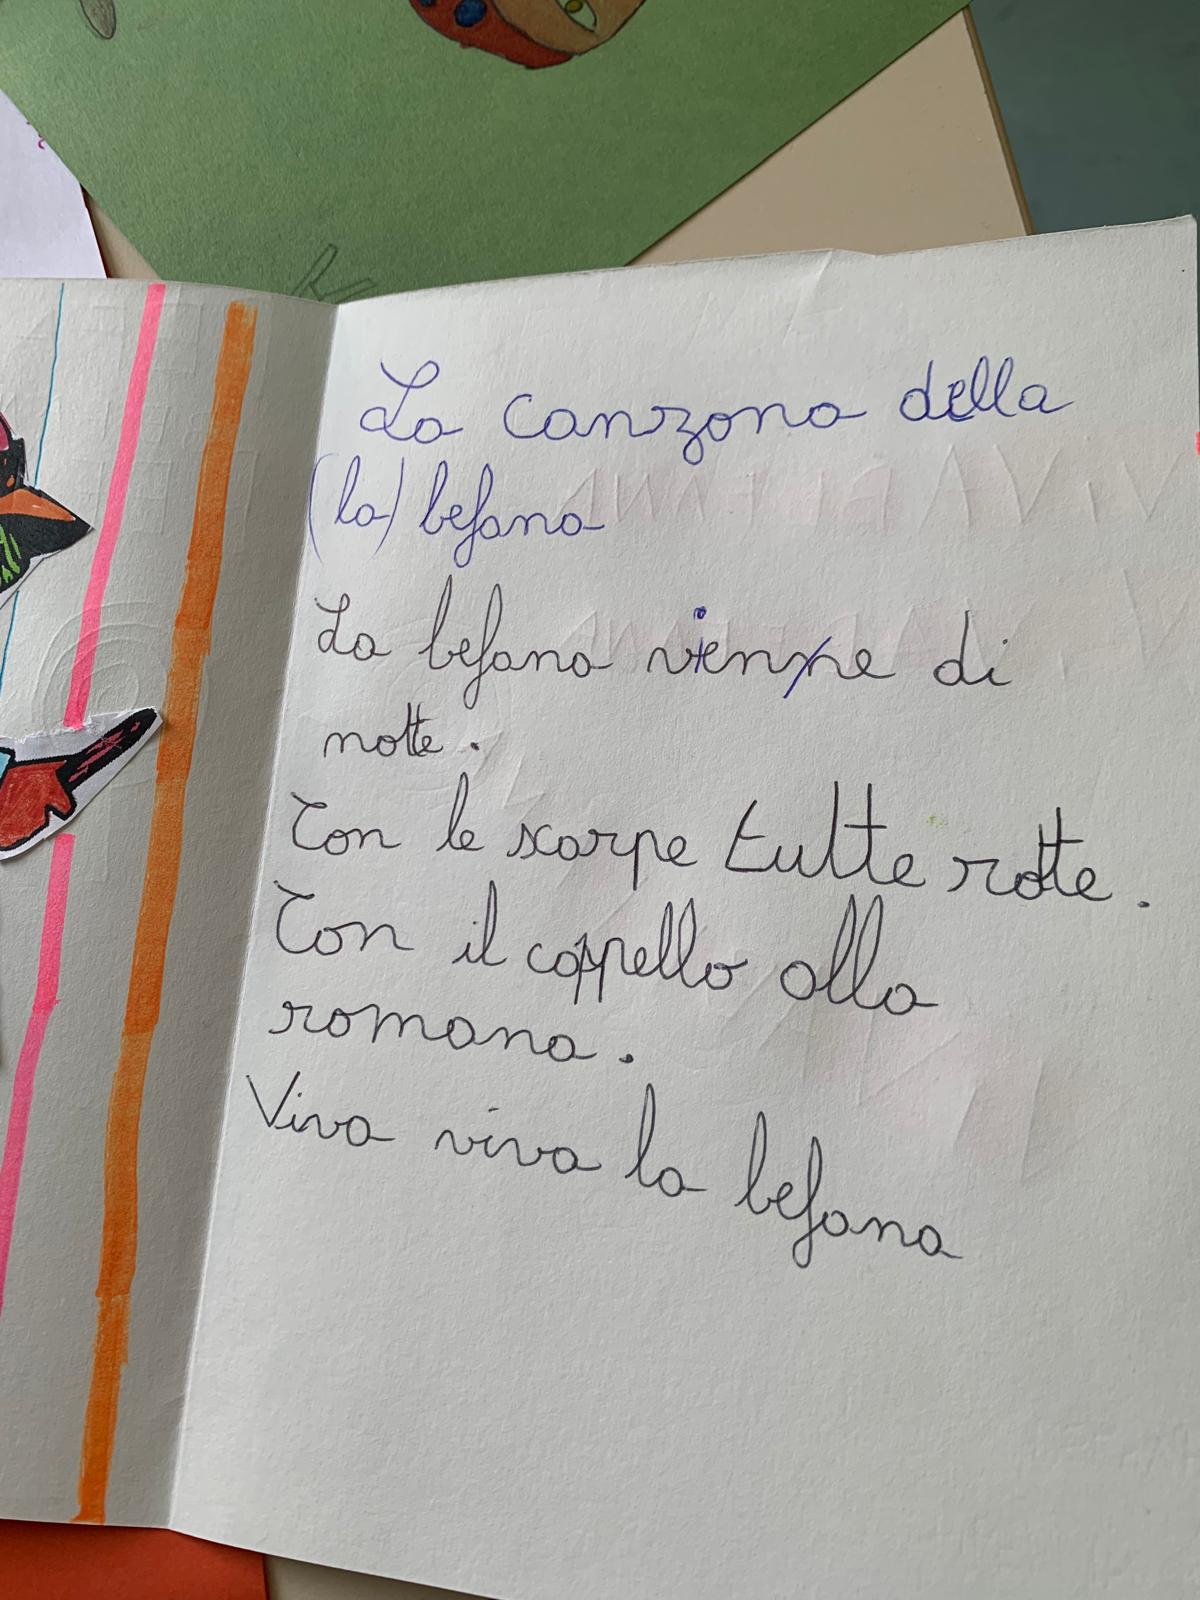 La canzona della
(la) befana
La befana vienne di
notte.
Con le scarpe tutte rotte.
Con il cappello alla
romana.
Viva viva la befana